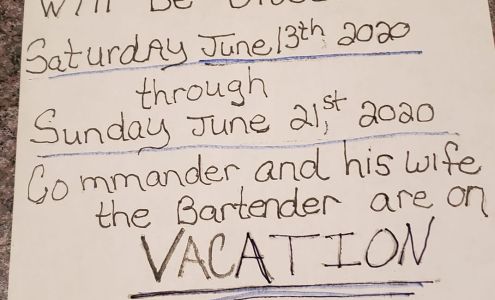 Will Be Closed
Saturday June 13th 2020
through
Sunday June 21,st 2020
Commander and his wife
the Bartender are on
VACATION